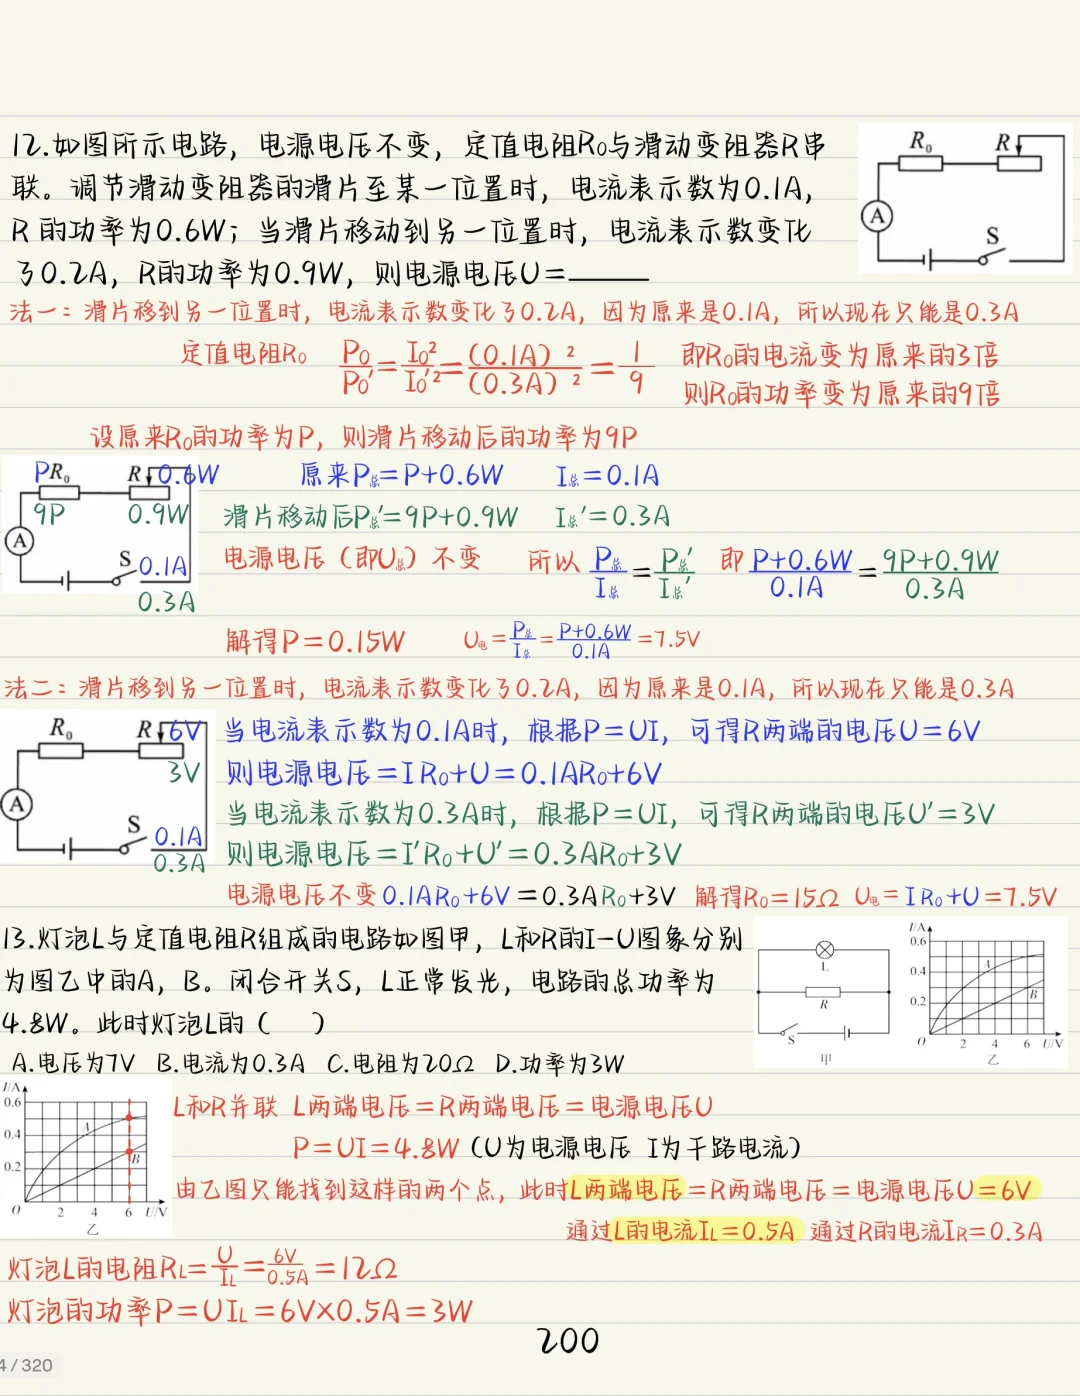 12.如图所示电路，电源电压不变，定值电阻R₀与滑动变阻器R串
联。调节滑动变阻器的滑片至某一位置时，电流表示数为0.1A，
R的功率为0.6W；当滑片移动到另一位置时，电流表示数变化
了0.2A，R的功率为0.9W，则电源电压U=______
R₀ R
A
S
法一：滑片移到另一位置时，电流表示数变化了0.2A，因为原来是0.1A，所以现在只能是0.3A
定值电阻R₀ P₀/P₀′=I₀²/I₀′²=(0.1A)²/(0.3A)²=1/9 即R₀的电流变为原来的3倍
则R₀的功率变为原来的9倍
设原来R₀的功率为P，则滑片移动后的功率为9P
P R₀ R 0.6W
9P 0.9W
A
S 0.1A
0.3A
原来P总=P+0.6W I总=0.1A
滑片移动后P总′=9P+0.9W I总′=0.3A
电源电压（即U总）不变 所以 P总/I总=P总′/I总′ 即 P+0.6W/0.1A=9P+0.9W/0.3A
解得P=0.15W U电=P总/I总=P+0.6W/0.1A=7.5V
法二：滑片移到另一位置时，电流表示数变化了0.2A，因为原来是0.1A，所以现在只能是0.3A
R₀ R 6V
3V
A
S 0.1A
0.3A
当电流表示数为0.1A时，根据P=UI，可得R两端的电压U=6V
则电源电压=IR₀+U=0.1AR₀+6V
当电流表示数为0.3A时，根据P=UI，可得R两端的电压U′=3V
则电源电压=I′R₀+U′=0.3AR₀+3V
电源电压不变0.1AR₀+6V=0.3AR₀+3V 解得R₀=15Ω U电=IR₀+U=7.5V
13.灯泡L与定值电阻R组成的电路如图甲，L和R的I-U图象分别
为图乙中的A，B。闭合开关S，L正常发光，电路的总功率为
4.8W。此时灯泡L的（ ）
L
R
S
甲
I/A
0.6
0.4
0.2
A
B
O 2 4 6 U/V
乙
A.电压为7V B.电流为0.3A C.电阻为20Ω D.功率为3W
I/A
0.6
0.4
0.2
A
B
O 2 4 6 U/V
乙
L和R并联 L两端电压=R两端电压=电源电压U
P=UI=4.8W（U为电源电压 I为干路电流）
由乙图只能找到这样的两个点，此时L两端电压=R两端电压=电源电压U=6V
通过L的电流IL=0.5A 通过R的电流IR=0.3A
灯泡L的电阻RL=U/IL=6V/0.5A=12Ω
灯泡的功率P=UIL=6V×0.5A=3W
200
4 / 320